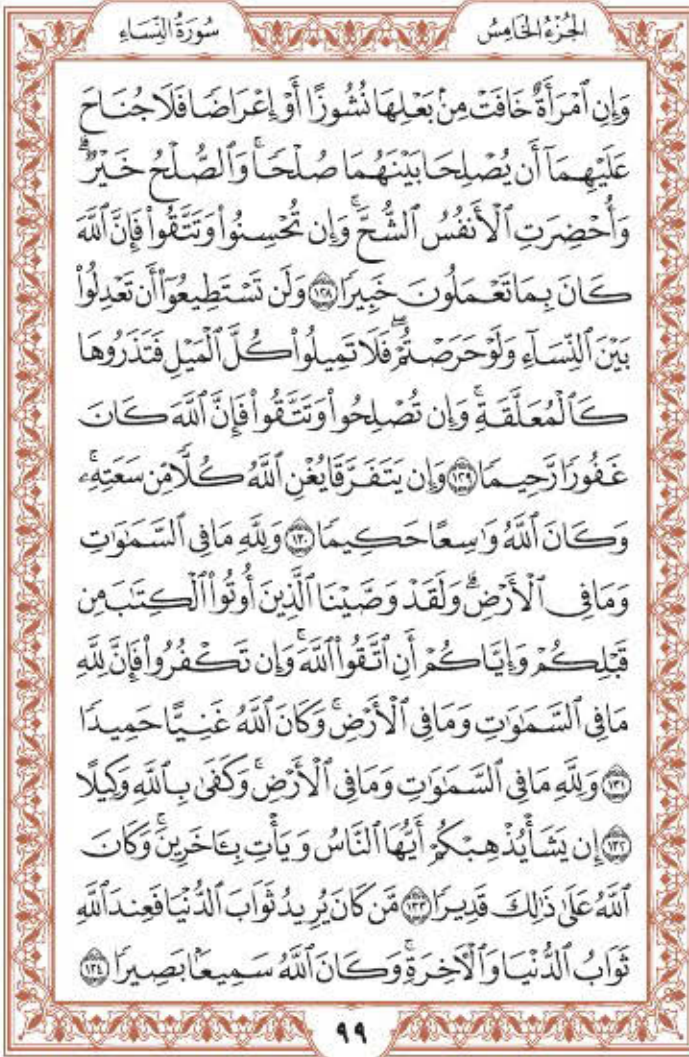 سُورَةُ النِّسَاءِ
الجُزْءُ الخَامِسُ
وَإِنِ ٱمْرَأَةٌ خَافَتْ مِنۢ بَعْلِهَا نُشُوزًا أَوْ إِعْرَاضًا فَلَا جُنَاحَ
عَلَيْهِمَآ أَن يُصْلِحَا بَيْنَهُمَا صُلْحًا ۚ وَٱلصُّلْحُ خَيْرٌ ۗ
وَأُحْضِرَتِ ٱلْأَنفُسُ ٱلشُّحَّ ۚ وَإِن تُحْسِنُوا۟ وَتَتَّقُوا۟ فَإِنَّ ٱللَّهَ
كَانَ بِمَا تَعْمَلُونَ خَبِيرًا ١٢٨ وَلَن تَسْتَطِيعُوٓا۟ أَن تَعْدِلُوا۟
بَيْنَ ٱلنِّسَآءِ وَلَوْ حَرَصْتُمْ ۖ فَلَا تَمِيلُوا۟ كُلَّ ٱلْمَيْلِ فَتَذَرُوهَا
كَٱلْمُعَلَّقَةِ ۚ وَإِن تُصْلِحُوا۟ وَتَتَّقُوا۟ فَإِنَّ ٱللَّهَ كَانَ
غَفُورًا رَّحِيمًا ١٢٩ وَإِن يَتَفَرَّقَا يُغْنِ ٱللَّهُ كُلًّا مِّن سَعَتِهِۦ ۚ
وَكَانَ ٱللَّهُ وَٰسِعًا حَكِيمًا ١٣٠ وَلِلَّهِ مَا فِى ٱلسَّمَٰوَٰتِ
وَمَا فِى ٱلْأَرْضِ ۗ وَلَقَدْ وَصَّيْنَا ٱلَّذِينَ أُوتُوا۟ ٱلْكِتَٰبَ مِن
قَبْلِكُمْ وَإِيَّاكُمْ أَنِ ٱتَّقُوا۟ ٱللَّهَ ۚ وَإِن تَكْفُرُوا۟ فَإِنَّ لِلَّهِ
مَا فِى ٱلسَّمَٰوَٰتِ وَمَا فِى ٱلْأَرْضِ ۚ وَكَانَ ٱللَّهُ غَنِيًّا حَمِيدًا
١٣١ وَلِلَّهِ مَا فِى ٱلسَّمَٰوَٰتِ وَمَا فِى ٱلْأَرْضِ ۚ وَكَفَىٰ بِٱللَّهِ وَكِيلًا
١٣٢ إِن يَشَأْ يُذْهِبْكُمْ أَيُّهَا ٱلنَّاسُ وَيَأْتِ بِـَٔاخَرِينَ ۚ وَكَانَ
ٱللَّهُ عَلَىٰ ذَٰلِكَ قَدِيرًا ١٣٣ مَّن كَانَ يُرِيدُ ثَوَابَ ٱلدُّنْيَا فَعِندَ ٱللَّهِ
ثَوَابُ ٱلدُّنْيَا وَٱلْـَٔاخِرَةِ ۚ وَكَانَ ٱللَّهُ سَمِيعًۢا بَصِيرًا ١٣٤
٩٩